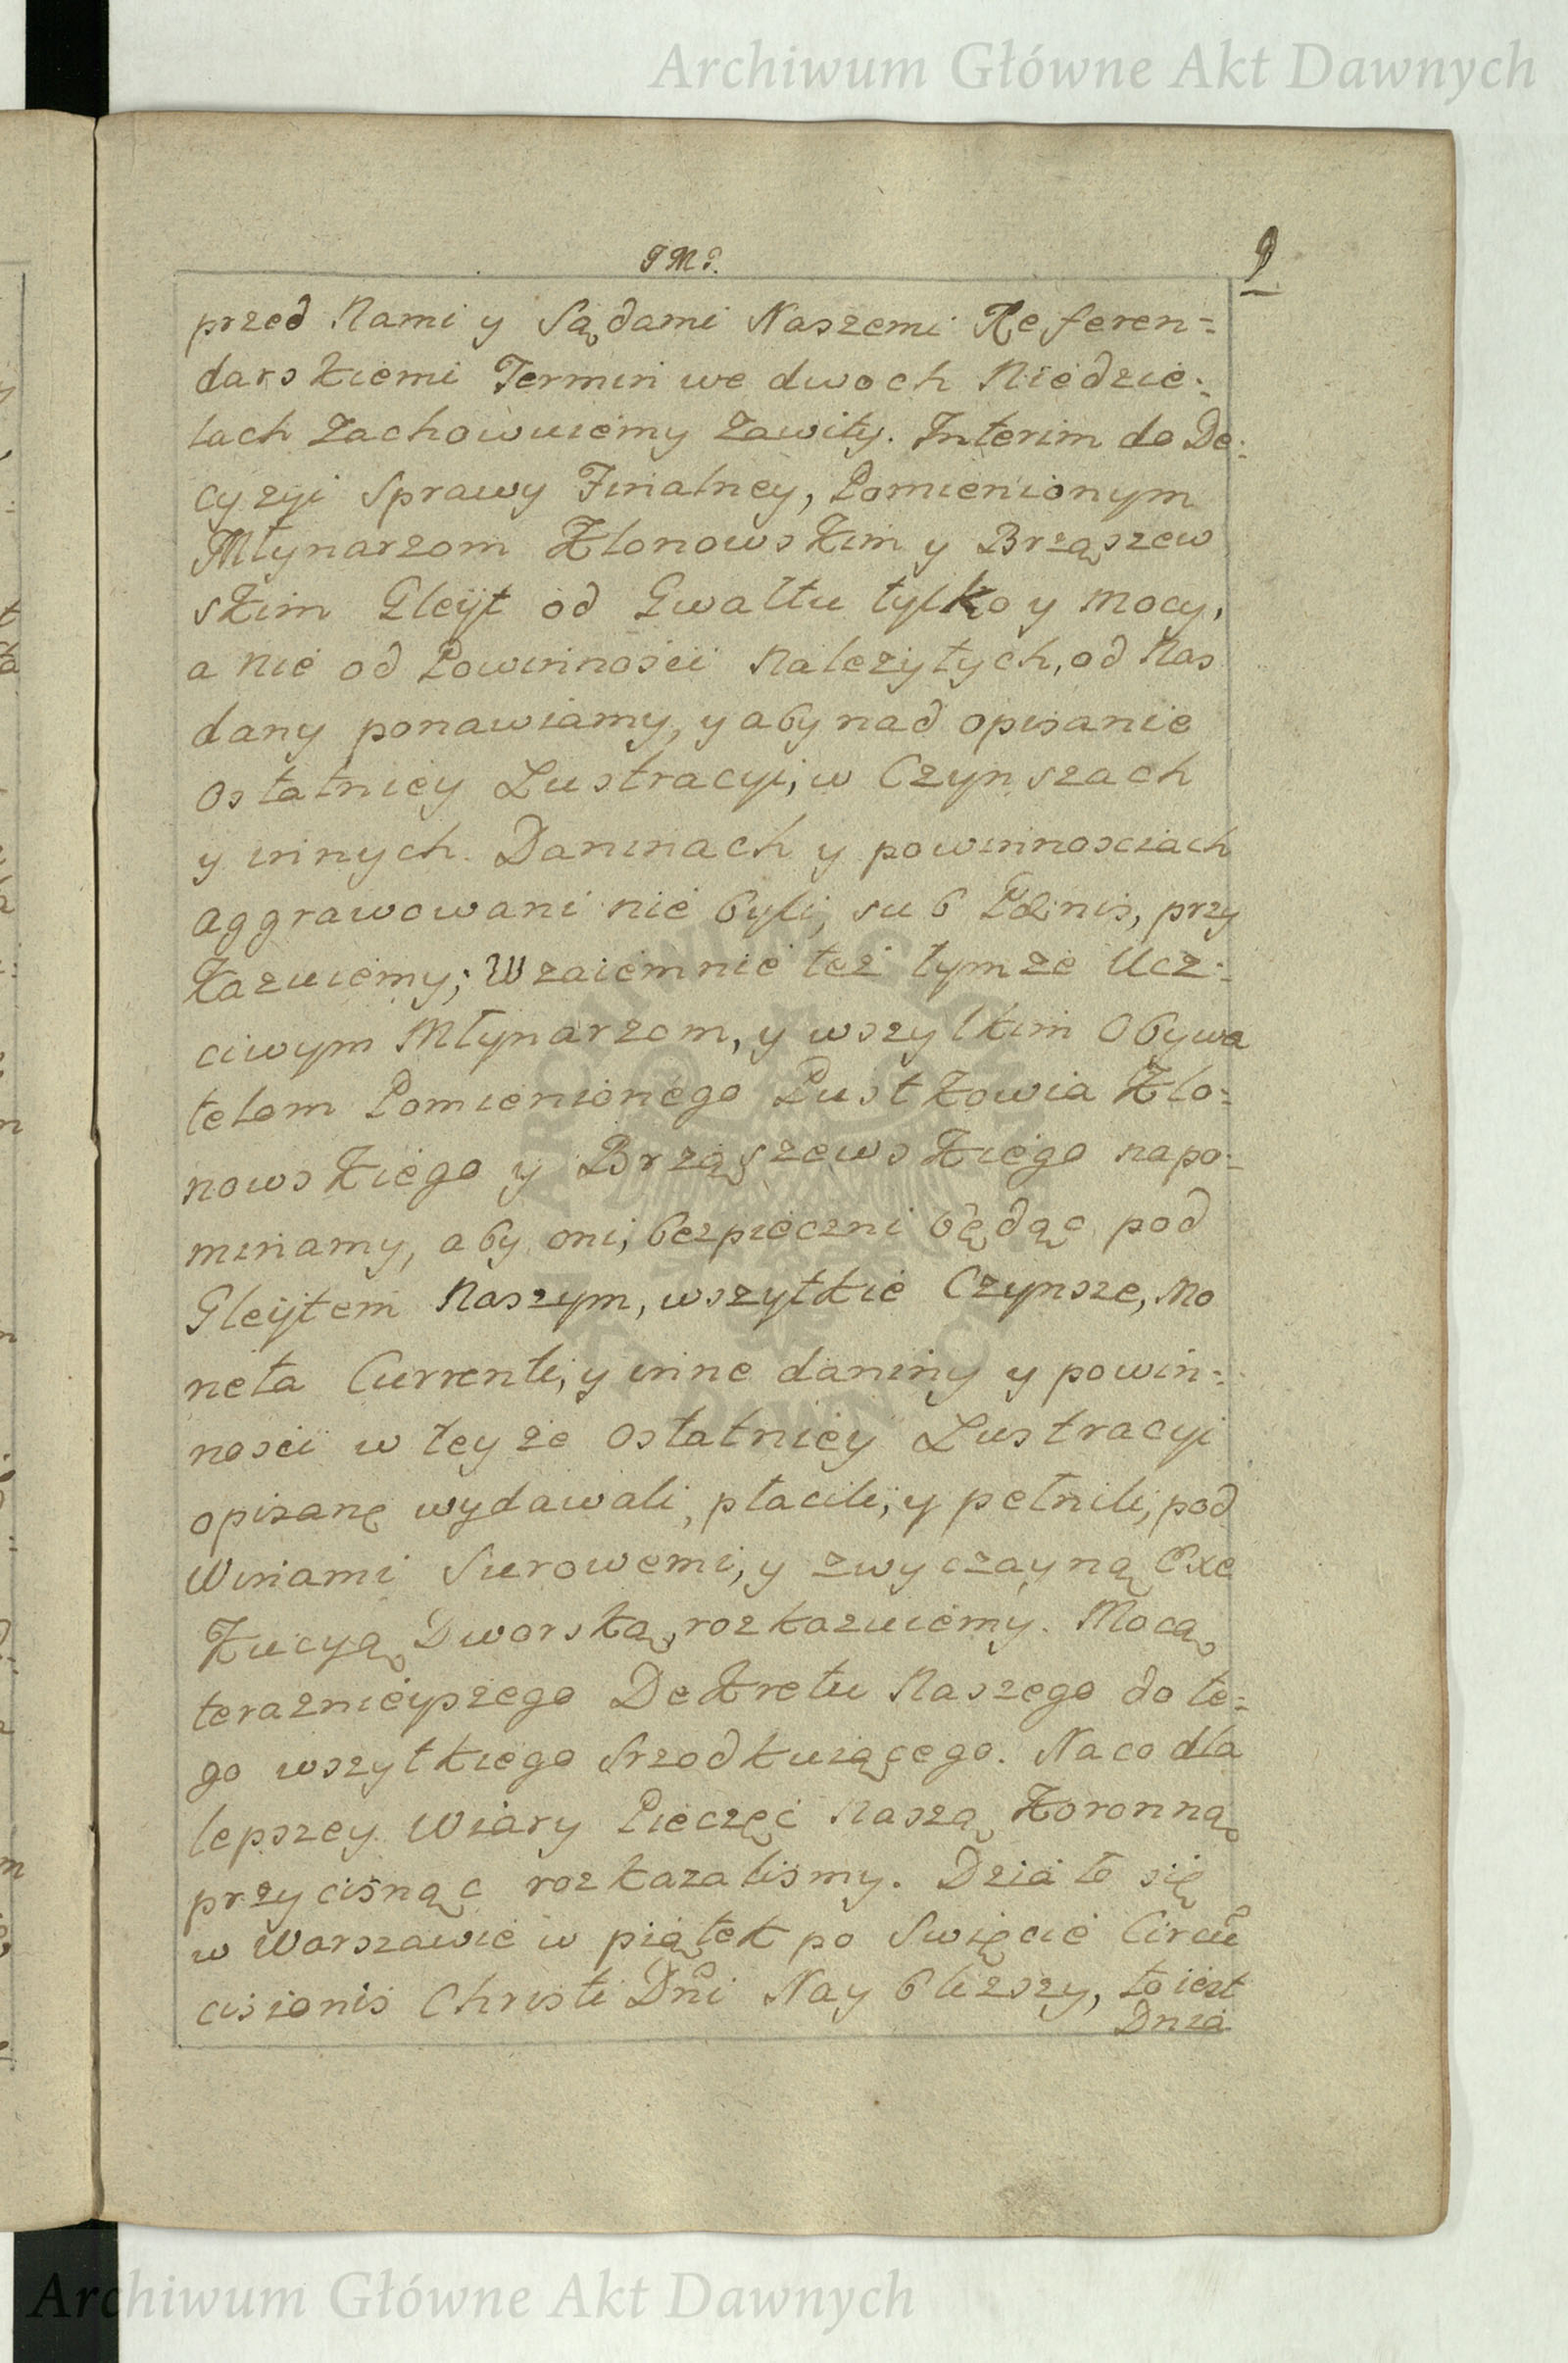 Archiwum Główne Akt Dawnych
9
przed Nami y Sądami Naszemi Referen=
darskiemi Termin we dwoch Niedzie:
lach zachowuiemy zawity. Interim do De:
cyzyi Sprawy Finalney, Pomienionym
Młynarzom Klonowskim y Brząszew
skim Gleyt od Gwałtu tylko y mocy,
a nie od Powinności Nalezytych, od Nas
dany ponawiamy, y aby nad opisanie
Ostatniey Lustracyi, w Czynszach
y innych Daninach y powinnosciach
aggrawowani nie byli, sub Pœnis, przy
kazuiemy; Wzaiemnie też tymże Ucz:
ciwym Młynarzom, y wszytkim Obywa
telom Pomienionego Pustkowia Klo=
nowskiego y Brząszewskiego napo=
minamy, aby oni, bezpieczni będąc pod
Gleytem Naszym, wszytkie Czynsze, Mo
neta Currenti, y inne daniny y powin=
nosci w teyże Ostatniey Lustracyi
opisanę wydawali, płacili, y pełnili, pod
Winami Surowemi, y zwyczayną Exe
kucyą Dworską, rozkazuiemy. Mocą
teraznieyszego Dekretu Naszego do te=
go wszytkiego Srzodkuiącego. Na co dla
lepszey Wiary Pieczęć Naszą Koronną
przycisnąc rozkazalismy. Działo się
w Warszawie w piątek po Swięcie Circu
cisionis Christi Dni Nay bliższy, to iest
Dnia
ARCHIWUM GŁÓWNE AKT DAWNYCH
Archiwum Główne Akt Dawnych